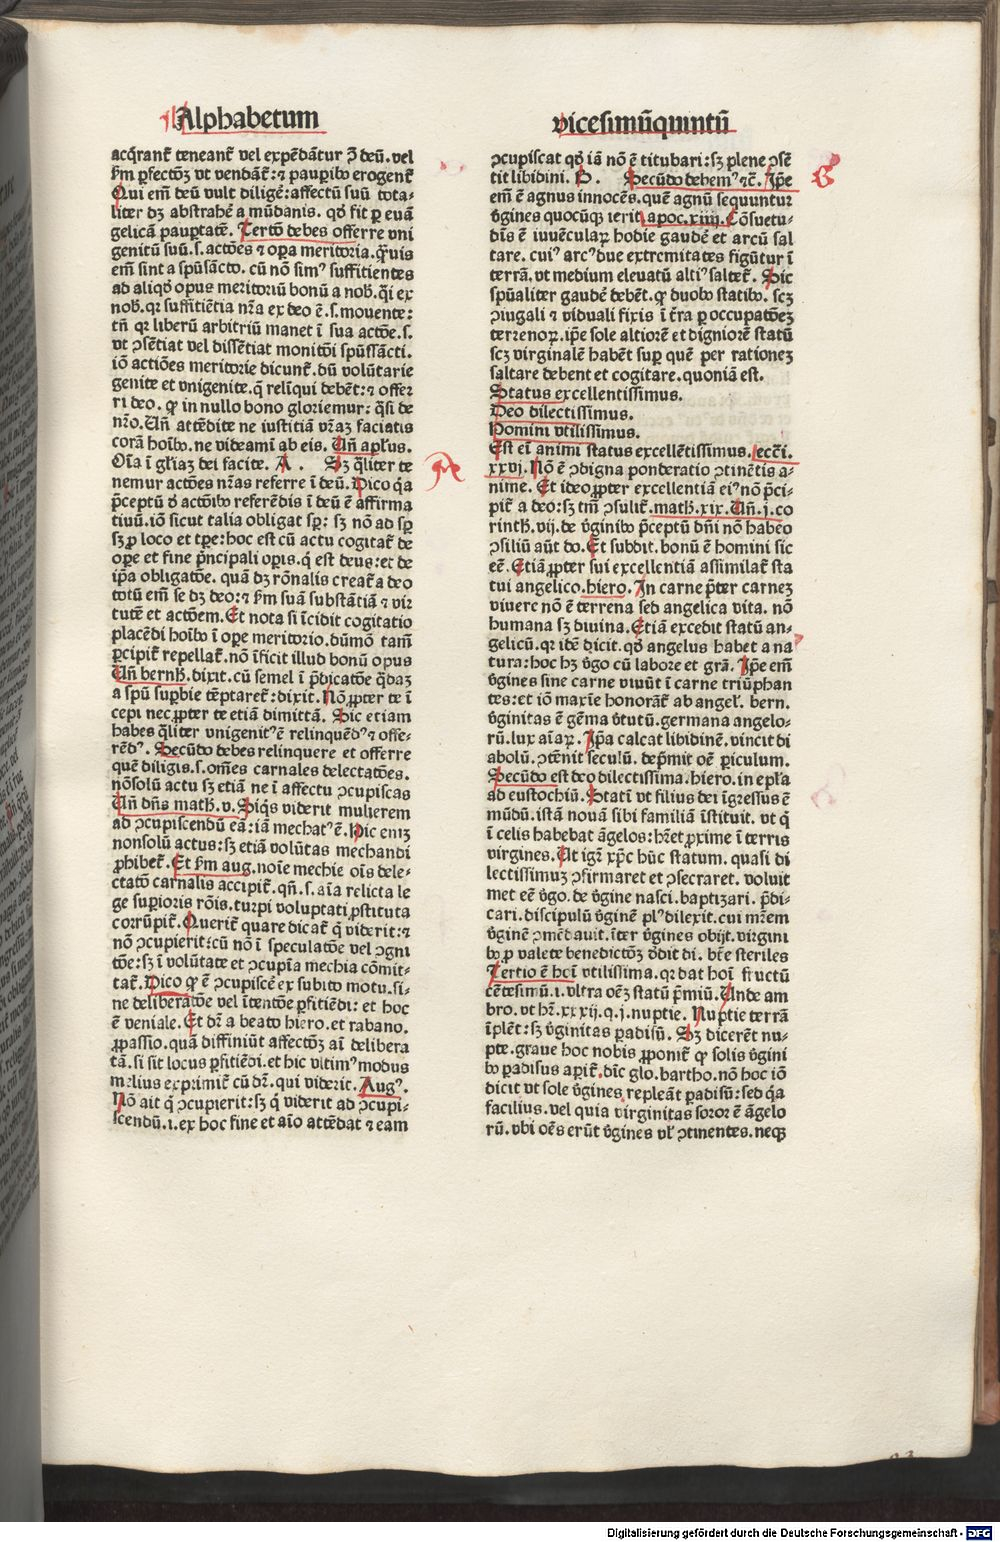 Alphabetum
acq̃rant̃ teneant̃ vel expẽdãtur ꝓ deũ. vel
ẞm ꝑfectõꝫ vt vendãt̃: ⁊ pauꝑibꝰ erogent̃
Qui em̃ deũ vult diligẽ: affectũ suũ tota-
liter dꝫ abstrahẽ a mũdanis. qđ fit ꝑ euã
gelicã pauꝑtatẽ. Tertõ debes offerre vni
genitũ suũ. s. actões ⁊ oꝑa meritoria. q̃uis
em̃ sint a spũsãcto. cũ nõ simꝰ suffitientes
ad aliqđ opus meritoriũ bonũ a nob̃. q̃i ex
nob̃. qꝛ suffitiẽtia nr̃a ex deo ẽ .s. mouente:
tñ qꝛ liberũ arbitriũ manet ĩ sua actõe .s.
vt ꝯsẽtiat vel dissẽtiat monitõi spũssãcti.
iõ actiões meritorie dicunt̃. dũ volũtarie
genite et vnigenite. q̃ relĩqui debẽt: ⁊ offer
ri deo. ꝙ in nullo bono gloriemur: q̃si de
nr̃o. Vñ attẽdite ne iustitiã vr̃aꝫ faciatis
corã hoĩbꝰ. ne videamĩ ab eis. Vñ apl̃us.
Oĩa ĩ gl̃iaꝫ dei facite. A. Sꝫ q̃liter te
nemur actões nr̃as referre ĩ deũ. Dico q̃a
p̃ceptũ đ actõibꝰ referẽdis ĩ deũ ẽ affirma
tiuũ. iõ sicut talia obligat sꝑ: sꝫ nõ ad sꝑ
sꝫ ꝓ loco et tꝑe: hoc est cũ actu cogitat̃ de
oꝑe et fine p̃ncipali oꝑis. q̃ est deus: et de
ip̃a obligatõe. quã dꝫ rõnalis creat̃a deo
totũ em̃ se dꝫ deo: ⁊ ẞm suã substãtiã ⁊ vir
tutẽ et actõem. Et nota si ĩcidit cogitatio
placẽdi hoĩbꝰ ĩ oꝑe meritorio. dũmõ tam̃
ꝑcipit̃ repellat̃. nõ ĩficit illud bonũ opus
Vñ bernh̃. dixit. cũ semel ĩ p̃dicatõe q̃daꝫ
a spũ suꝑbie tẽptaret̃: dixit. Nõ ꝓpter te ĩ
cepi nec ꝓpter te etiã dimittã. Sic etiam
habes q̃liter vnigenitꝰ ẽ relinquẽdꝰ ⁊ offe-
rẽdꝰ. Secũdo debes relinquere et offerre
quẽ diligis. s. om̃es carnales delectatões.
nõsolũ actu sꝫ etiã ne ĩ affectu ꝯcupiscas
Vñ dñs math̃. v. Siq̃s viderit mulierem
ad ꝯcupiscendũ eã: iã mechatꝰ ẽ. Hic eniꝫ
nonsolũ actus: sꝫ etiã volũtas mechandi
ꝓhibet̃. Et ẞm aug. noĩe mechie oĩs dele-
ctatõ carnalis accipit̃. qñ .s. aĩa relicta le
ge suꝑioris rõis. turpi voluptati ꝓstituta
corrũpit̃. Querit̃ quare dicat̃ q̃ viderit: ⁊
nõ ꝯcupierit: cũ nõ ĩ speculatõe vel ꝯgni
tõe: sꝫ ĩ volũtate et ꝯcupĩa mechia cõmit-
tat̃. Dico ꝙ ẽ ꝯcupiscẽ ex subito motu. si-
ne deliberatõe vel ĩtentõe ꝑfitiẽdi: et hoc
ẽ veniale. Et dr̃ a beato hiero. et rabano.
ꝓpassio. quã diffiniũt affectõꝫ aĩ delibera
tã. si sit locus ꝑfitiẽdi. et hic vltimꝰ modus
melius exprimit̃ cũ dr̃. qui viderit. Augꝰ.
Nõ ait q̃ ꝯcupierit: sꝫ q̃ viderit ad ꝯcupi-
scendũ .i. ex hoc fine et aĩo attẽdat ⁊ eam
A
vicesimũquintũ
ꝯcupiscat qđ iã nõ ẽ titubari: sꝫ plene ꝯsẽ
tit libidini. B. Secũdo debemꝰ ⁊c̃. Ip̃e
em̃ ẽ agnus innocẽs. quẽ agnũ sequuntur
v̉gines quocũqꝫ ierit. apoc. xiiij. Cõsuetu-
dĩs ẽ iuuẽculaꝝ hodie gaudẽ et arcũ sal
tare. cuiꝰ arcꝰ due extremitates figũtur ĩ
terrã. vt medium eleuatũ altiꝰ saltet̃. Sic
spũaliter gaudẽ debẽt. ꝙ duobꝰ statibꝰ. scꝫ
ꝯiugali ⁊ viduali fixis ĩ t̃ra ꝑ occupatõeꝫ
terrenoꝝ. ip̃e sole altiorẽ et digniorẽ statũ
scꝫ virginalẽ habẽt suꝑ quẽ per rationeꝫ
saltare debent et cogitare. quoniã est.
Status excellentissimus.
Deo dilectissimus.
Homini vtilissimus.
Est eĩ animi status excellẽtissimus. ecc̃i.
xxvj. Nõ ẽ ꝯdigna ponderatio ꝯtinẽtis a-
nime. Et ideo ꝓpter excellentiã eiꝰ nõ p̃ci-
pit̃ a deo: sꝫ tm̃ ꝯsulit̃. math̃. xix. Vñ. j. co
rinth̃. vij. de v̉ginibꝰ p̃ceptũ dñi nõ habeo
ꝯsiliũ aũt do. Et subdit. bonũ ẽ homini sic
eẽ. Etiã ꝓpter sui excellentiã assimilat̃ sta
tui angelico. hiero. In carne p̃ter carneꝫ
viuere nõ ẽ terrena sed angelica vita. nõ
humana sꝫ diuina. Etiã excedit statũ an-
gelicũ. qꝛ idẽ dicit. qđ angelus habet a na
tura: hoc hꝫ v̉go cũ labore et gr̃a. Ip̃e em̃
v̉gines sine carne viuũt ĩ carne triũphan
tes: et iõ maxĩe honorãt̃ ab angel̃. bern.
v̉ginitas ẽ gẽma v̉tutũ. germana angelo-
rũ. lux aĩaꝝ. Ip̃a calcat libidinẽ. vincit di
abolũ. ꝯtẽnit seculũ. dep̃mit oẽ ꝑiculum.
Secũdo est deo dilectissima. hiero. in epl̃a
ad eustochiũ. Statĩ vt filius dei ĩgressus ẽ
mũdũ. istã nouã sibi familiã ĩstituit. vt q̃
ĩ celis habebat ãgelos: hr̃et ꝓxime ĩ terris
virgines. Ut igr̃ xp̃c hũc statum. quasi di
lectissimuꝫ ꝯfirmaret et ꝯsecraret. voluit
met eẽ v̉go. de v̉gine nasci. baptizari. p̃di-
cari. discipulũ v̉ginẽ plꝰ dilexit. cui mr̃em
v̉ginẽ ꝯmẽdauit. ĩter v̉gines obijt. virgini
bꝰ ꝓ valete benedictõꝫ đdit di. btẽ steriles
Tertio ẽ hc̃i vtilissima. qꝛ dat hoĩ fructũ
cẽtesimũ .i. vltra oẽꝫ statũ p̃miũ. Vnde am
bro. vt hr̃. xxxij. q. j. nuptie. Nuptie terrã
ĩplẽt: sꝫ v̉ginitas ꝑadisũ. Sꝫ dicerẽt nu-
pte. graue hoc nobis ꝓponit̃ ꝙ solis v̉gini
bꝰ ꝑadisus aꝑit̃. dĩc glo. bartho. nõ hoc iõ
dicit vt sole v̉gines repleãt ꝑadisũ: sed q̃a
facilius. vel quia virginitas soror ẽ ãgelo
rũ. vbi oẽs erũt v̉gines vl̃ ꝯtinentes. neqꝫ
B
Digitalisierung gefördert durch die Deutsche Forschungsgemeinschaft - DFG